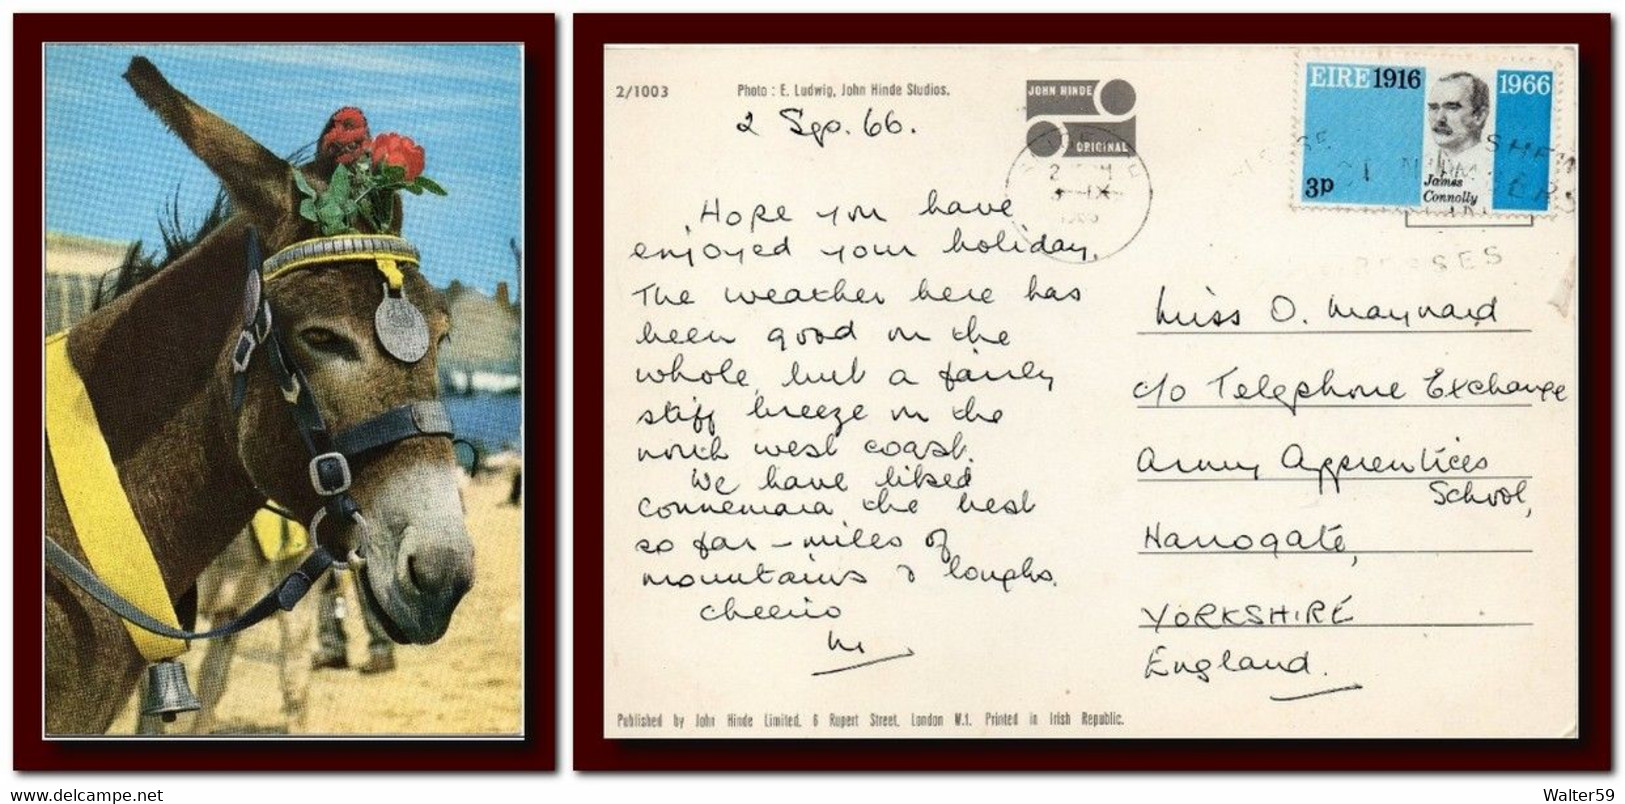 2/1003
Photo : E. Ludwig, John Hinde Studios.
2 Sep. 66.
JOHN HINDE
ORIGINAL
EIRE 1916 1966
3p
James
Connolly
Hope you have
enjoyed your holiday.
The weather here has
been good on the
whole, but a fairly
stiff breeze on the
north west coast.
We have liked
Connemara the best
so far – miles of
mountains & loughs.
Cheerio
Miss O. Maynard
c/o Telephone Exchange
Army Apprentices
School,
Harrogate,
YORKSHIRE
England.
Published by John Hinde Limited, 6 Rupert Street, London W.1. Printed in Irish Republic.
www.delcampe.net
Walter59